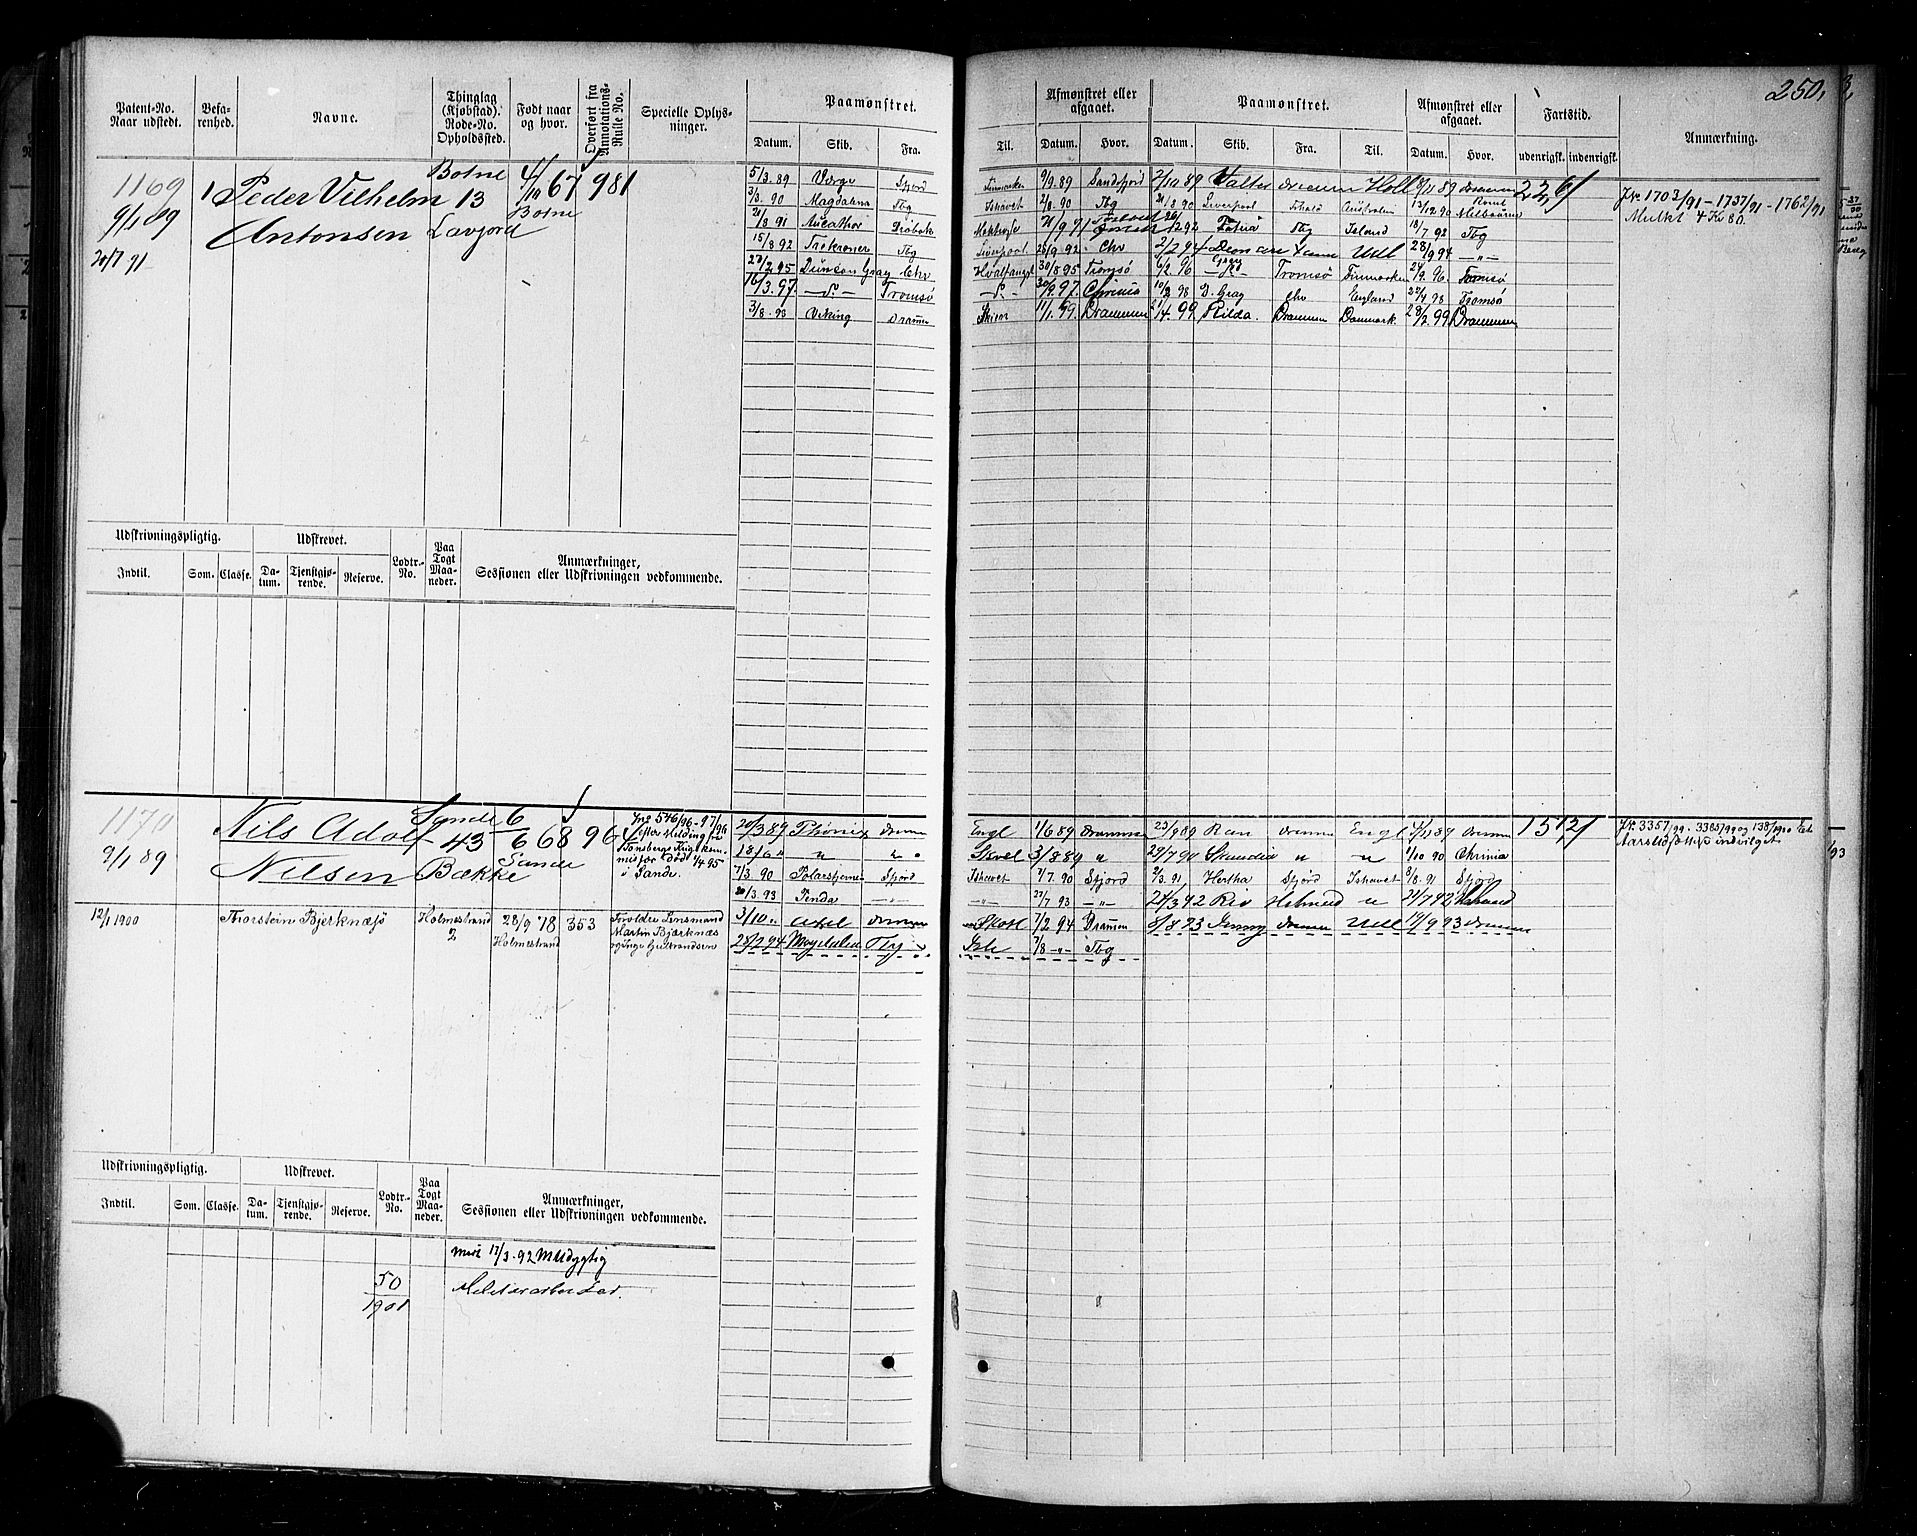 250,
Patent-No. Naar udstedt. Befarenhed. Navne. Thinglag (Kjøbstad). Rode-No. Opholdssted. Født naar og hvor. Overført fra Annotations-Rulle No. Specielle Oplysninger. Paamønstret.
Datum. Skib. Fra.
Afmønstret eller afgaaet. Paamønstret. Afmønstret eller afgaaet. Fartstid. Anmærkning.
Til. Datum. Hvor. Datum. Skib. Fra. Til. Datum. Hvor. udenrigsk. indenrigsk.
1169 1 Peder Vilhelm Botne 13 4/10 67 981
9/1 89 Antonsen Lavjord Botne
20/7 91
5/3.89 Værge Sfjord
3/3. 90 Magdalena Tbg
21/8 91 Drøbak
15/8 92 Trekroner Tbg
27/2.95 Duncan Gray Chr
16/3.97. —"— Tromsø
3/8. 98 Viking Drammen
Finmarken 9/9 89 Sandefjord 2/10 89 Valter Drammen Holl 9/11 89 Drammen 22 6
Ishavet 2/8. 90 Tbg 21/8 90 Liverpool Australien 13/12 90 Melbourne
92 Tbg Island 18/7 92 Tbg
Liverpool 26/9.92. Chr 2/2 94 28/9 94 —"—
Hvalfangst 30/8 95 Tromsø 6/2. 96 Tromsø Finmarken 24/9. 96. Tromsø
30/9.97. Chrinia 10/2 98 D. Gray Chr England 22/4 98 Tromsø
Skien 11/1.99. Drammen 21/4. 99 Rilda. Drammen Danmark. 28/2.99 Drammen
J.No 1703/91 – 1737/91 – 1762/91
Mulkt 4 Kr 80.
Udskrivningspligtig. Udskrevet. Lodtr.-No. Paa Togt Maaneder. Anmærkninger, Sessionen eller Udskrivningen vedkommende.
Indtil. Som. Classe. Datum. Tjenstgjørende. Reserve.
1170 Nils Adolf Sande 43 6/6 68 96
9/1 89 Nilsen Bække Sande
Jno 546/96 – 97/96
efter Melding fra
Tønsbergs Krigskom-
misfor død 1/4 95
i Sande.
20/3 89 Phønix Drmen
18/6 " " " "
7/3. 90 Polarstjernen Sfjord
20/3. 93 Tenda —"—
3/10 " Axel Drmen
28/2 94 Magdalen Tbg
Engl 1/6 89 Drammen 23/9 89 Ran Drmmen Engl 89 Drmen 15 12
Skvel 3/8 89 " 29/7 90 Skandia " " 1/10 90 Chrinia
Ishavet 7/7. 90 Sfjord 2/3. 91 Hertha Sfjord Ishavet 8/8. 91 Sfjord
—"— 27/7 93 —"— 24/3 92 Rio Holmstrd " 21/7 92 Holmstrand
Skotl 7/2 94 Dramen 8/8 93 Jenny Drmen Ull 19/9 93 Drmmen
Isl. 7/8 —"— Tbg
J.No. 3357/99. 3385/99 og 138/1900
Aarsudsættelse indvilget
12/1 1900 Thorstein Bjerknæsø Holmestrand 2 28/9 '78 Holmestrand 353
Forældre Lensmand
Martin Bjærknæs
Udskrivningspligtig. Udskrevet. Lodtr.-No. Paa Togt Maaneder. Anmærkninger, Sessionen eller Udskrivningen vedkommende.
Indtil. Som. Classe. Datum. Tjenstgjørende. Reserve.
Møt 17/3. 92 Mudygtig
50/1901 Militærarbeider.